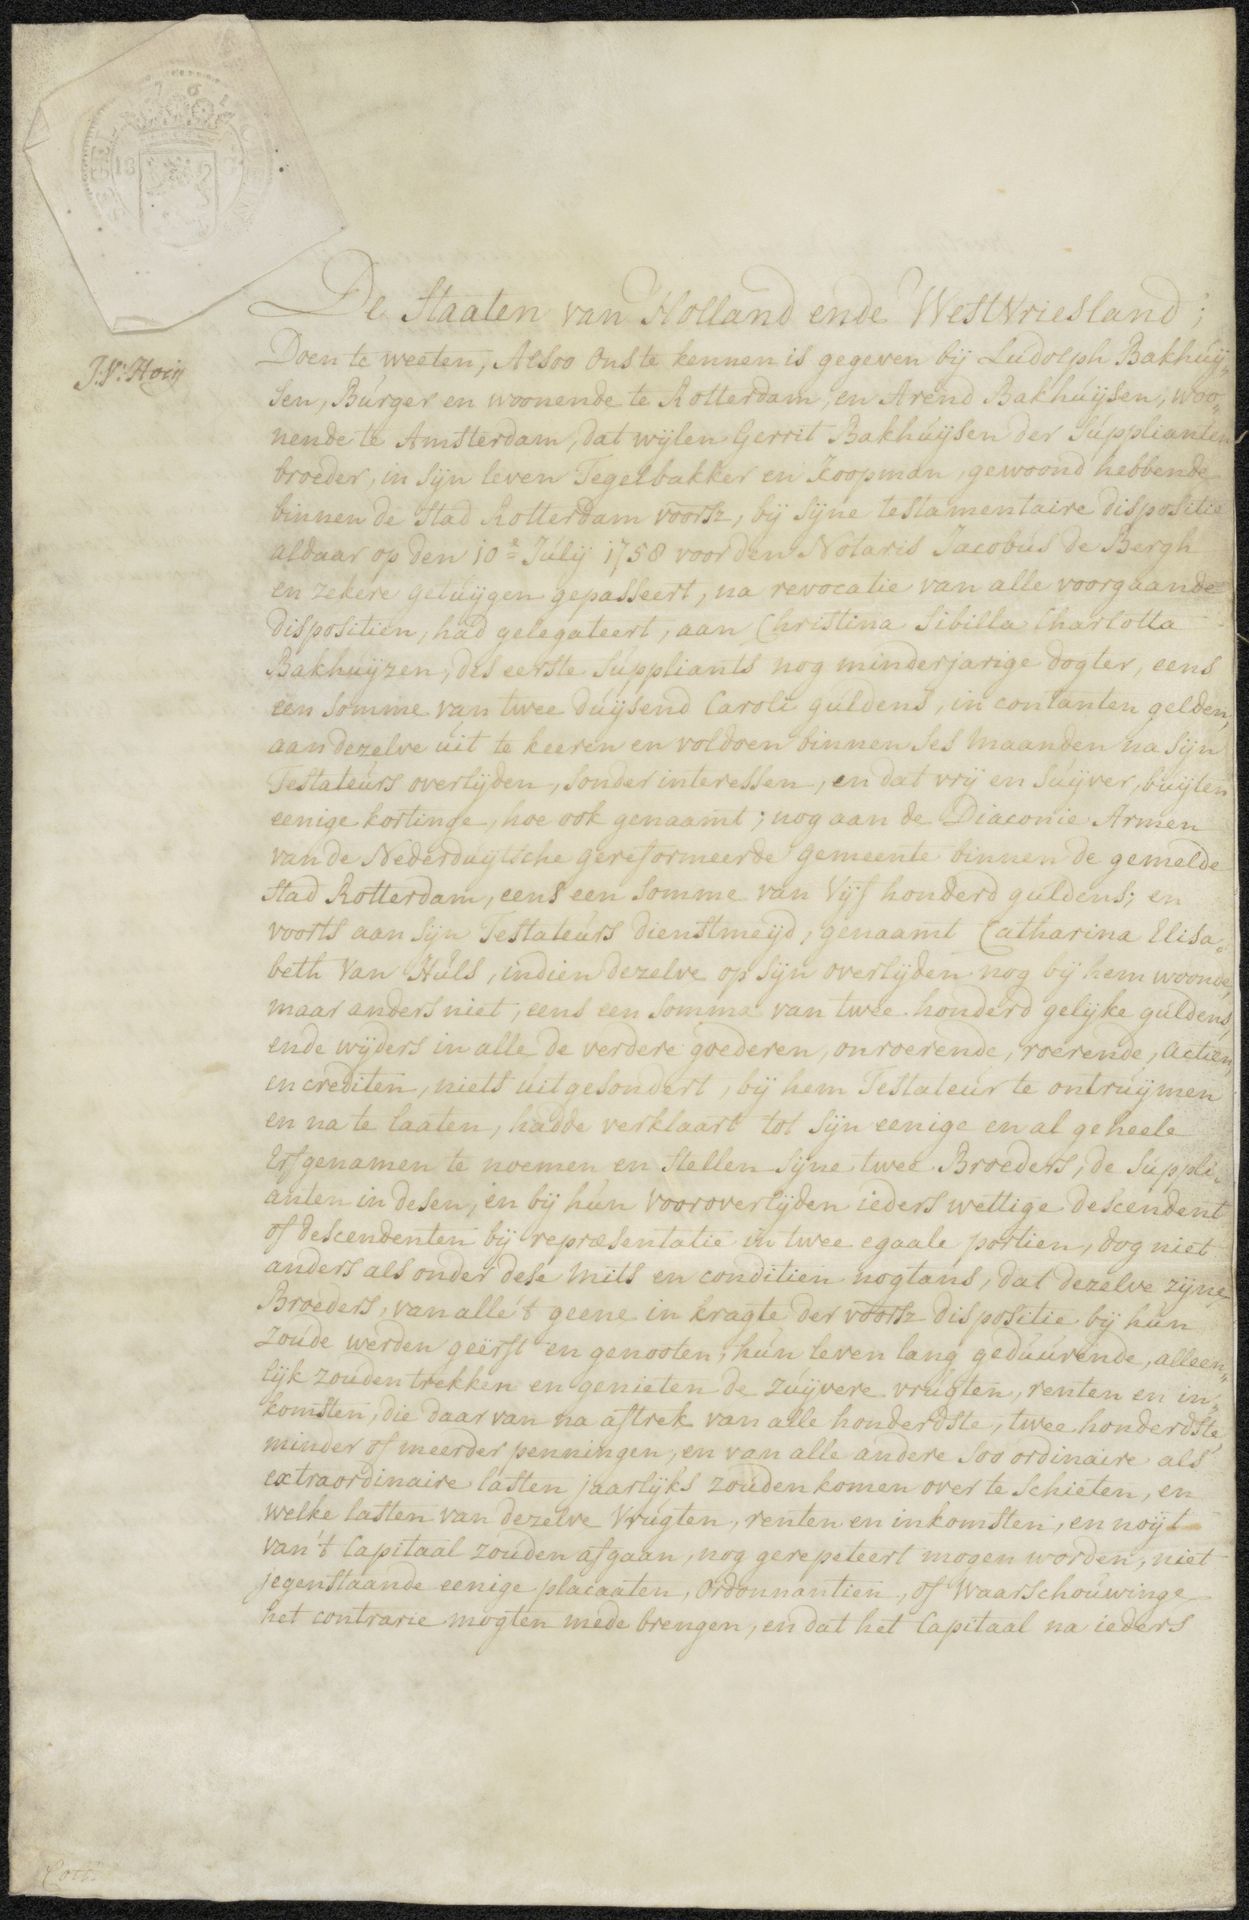 De Staaten van Holland ende Westvriesland;
J.V: Hoeij
Doen te weeten, Alsoo Ons te kennen is gegeven bij Ludolph Bakhúÿ-
sen, Búrger en woonende te Rotterdam, en Arend Bakhúÿsen, woo-
nende te Amsterdam, dat wijlen Gerrit Bakhúÿsen der Súpplianten
broeder, in sijn leven Tegelbakker en Koopman, gewoond hebbende
binnen de Stad Rotterdam voorsz, bij sijne testamentaire dispositie
aldaar op den 10e Júlij 1758 voor den Notaris Jacobús de Bergh
en zekere getúijgen gepasseert, na revocatie van alle voorgaande
dispositien, had gelegateert, aan Christina Sibilla Charlotta
Bakhuijzen, des eerste Súppliants nog minderjarige dogter, eens
een somme van twee dúijsend Caroli gúldens, in contanten gelden,
aan dezelve úit te keeren en voldoen binnen ses maanden na sijn
Testateúrs overlijden, sonder interessen, en dat vrij en súijver, búijten
eenige kortinge, hoe ook genaamt; nog aan de Diaconie Armen
van de Nederduijtsche gereformeerde gemeente binnen de gemelde
Stad Rotterdam, eens een somme van Vijf honderd gúldens; en
voorts aan sijn Testateúrs dienstmeijd, genaamt Catharina Elisa-
beth Van Húls, indien dezelve op sijn overlijden nog bij hem woonde,
maar anders niet, eens een somma van twee honderd gelijke gúldens,
ende wijders in alle de verdere goederen, onroerende, roerende, actien,
en crediten, niets úitgesondert, bij hem Testateúr te ontrúijmen
en na te laaten, hadde verklaart tot sijn eenige en al geheele
Erfgenamen te noemen en stellen sijne twee Broeders, de Súppli-
anten in desen, en bij hún vooroverlijden ieders wettige descendent
of descendenten bij repræsentatie in twee egaale portien, dog niet
anders als onder dese mits en conditien nogtans, dat dezelve zijne
Broeders, van alle 't geene in kragte der voorsz dispositie bij hún
zoude werden geërft en genooten, hún leven lang gedúúrende, alleen-
lijk zouden trekken en genieten de zúijvere vrúgten, renten en in-
komsten, die daar van na aftrek van alle honderdste, twee honderdste,
minder of meerder penningen, en van alle andere soo ordinaire als
extraordinaire lasten jaarlijks zouden komen over te schieten, en
welke lasten van dezelve Vrúgten, renten en inkomsten, en noijt
van 't Capitaal zoúden afgaan, nog gerepeteert mogen worden, niet
jegenstaande eenige placaaten, Ordonnantien, of Waarschoúwinge
het contrarie mogten mede brengen, en dat het Capitaal na ieders